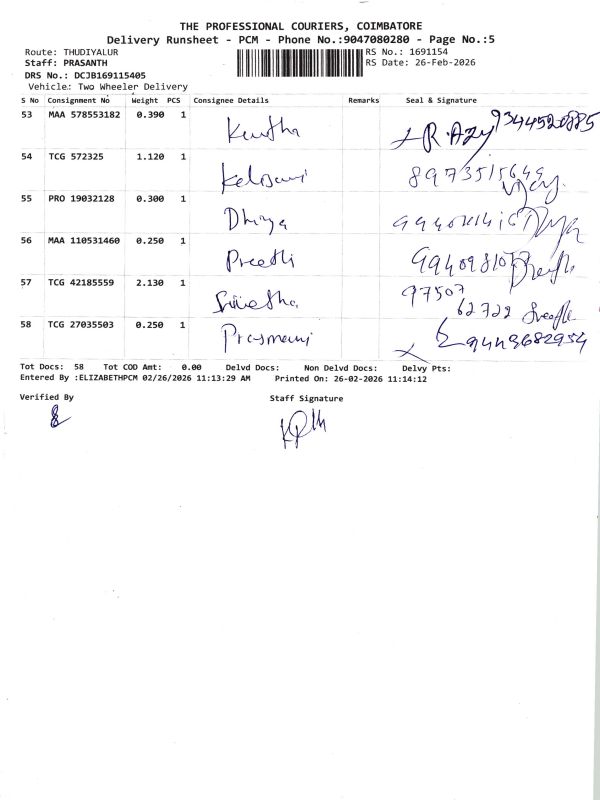 THE PROFESSIONAL COURIERS, COIMBATORE
Delivery Runsheet - PCM - Phone No.:9047080280 - Page No.:5
Route: THUDIYALUR
RS No.: 1691154
Staff: PRASANTH
RS Date: 26-Feb-2026
DRS No.: DCJB169115405
Vehicle: Two Wheeler Delivery
S No Consignment No Weight PCS Consignee Details Remarks Seal & Signature
53 MAA 578553182 0.390 1
54 TCG 572325 1.120 1
55 PRO 19032128 0.300 1 Dhivya
56 MAA 110531460 0.250 1 Preethi
57 TCG 42185559 2.130 1 97507
62722
58 TCG 27035503 0.250 1 9443682954
Tot Docs: 58 Tot COD Amt: 0.00 Delvd Docs: Non Delvd Docs: Delvy Pts:
Entered By :ELIZABETHPCM 02/26/2026 11:13:29 AM Printed On: 26-02-2026 11:14:12
Verified By Staff Signature